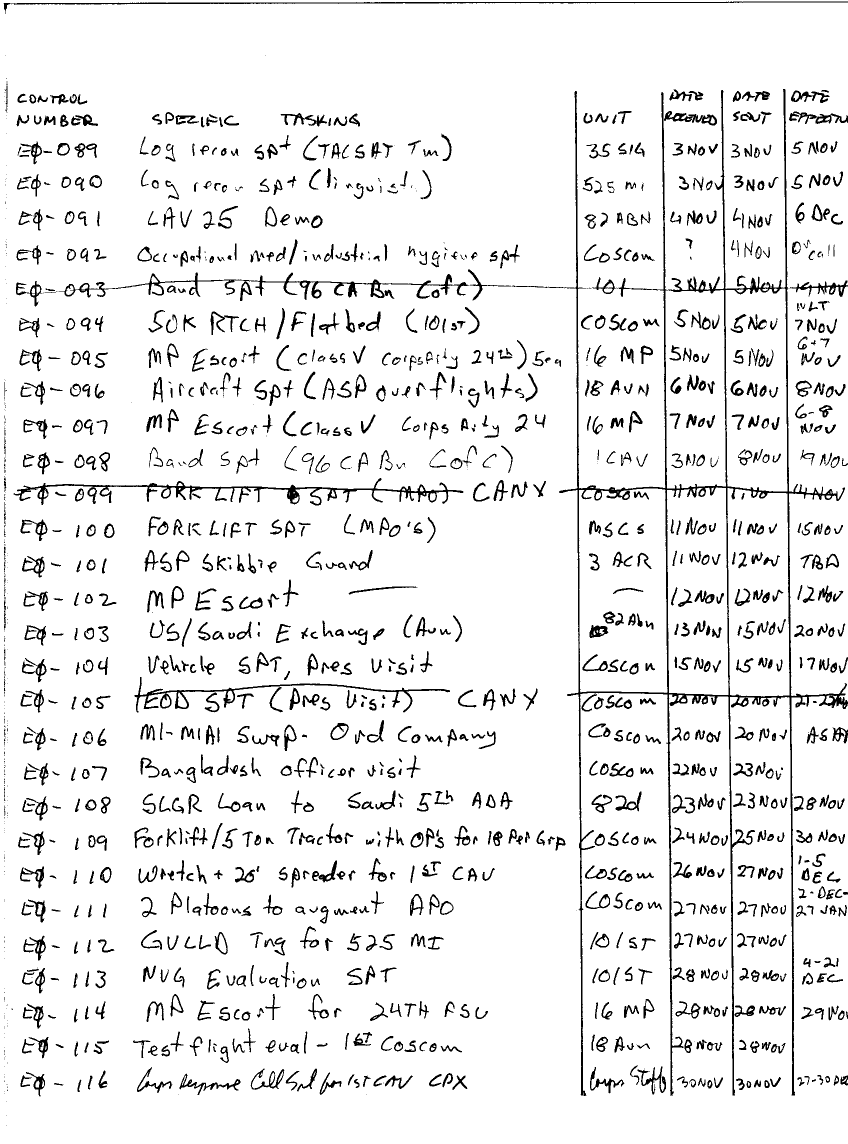 CONTROL DATE DATE DATE
NUMBER SPEZIFIC TASKING UNIT RECEIVED SENT EFFECTIV
EØ-089 Log recon spt (TACSAT Tm) 35 SIG 3 Nov 3 Nov 5 Nov
EØ-090 Log recon spt (linguist.) 525 MI 3 Nov 3 Nov 5 Nov
EØ-091 LAV 25 Demo 82 ABN 4 Nov 4 Nov 6 Dec
EØ-092 Occupational med/industrial hygiene spt Coscom ? 4 Nov call
EØ-093 Band Spt (96 CA Bn CofC) 101 3 Nov 5 Nov 19 Nov
EØ-094 50K RTCH/Flatbed (101st) COSCOM 5 Nov 5 Nov NLT 7 Nov
EØ-095 MP Escort (Class V Corps Arty 24th) 5 Nov 16 MP 5 Nov 5 Nov 6-7 Nov
EØ-096 Aircraft Spt (ASP overflights) 18 AVN 6 Nov 6 Nov 8 Nov
EØ-097 MP Escort (Class V Corps Arty 24 16 MP 7 Nov 7 Nov 6-8 Nov
EØ-098 Band Spt (96 CA Bn CofC) 1 CAV 3 Nov 8 Nov 19 Nov
EØ-099 FORK LIFT SPT (MPO) CANX Coscom 11 Nov 14 Nov
EØ-100 FORK LIFT SPT (MPO's) MSCs 11 Nov 11 Nov 15 Nov
EØ-101 ASP Skibbie Guard 3 ACR 11 Nov 12 Nov TBA
EØ-102 MP Escort — — 12 Nov 12 Nov 12 Nov
EØ-103 US/Saudi Exchange (Avn) 82 Abn 13 Nov 15 Nov 20 Nov
EØ-104 Vehicle SPT, Pres Visit Coscom 15 Nov 15 Nov 17 Nov
EØ-105 EOD SPT (Pres Visit) CANX Coscom 20 Nov 20 Nov
EØ-106 M1-M1A1 Swap- Ord Company Coscom 20 Nov 20 Nov ASAP
EØ-107 Bangladesh officer visit Coscom 22 Nov 23 Nov
EØ-108 SLGR Loan to Saudi 5th ADA 82d 23 Nov 23 Nov 28 Nov
EØ-109 Forklift/5 Ton Tractor with OP's for 18 Per Grp Coscom 24 Nov 25 Nov 30 Nov
EØ-110 Wretch + 20' spreader for 1ST CAV Coscom 26 Nov 27 Nov 1-5 DEC
EØ-111 2 Platoons to augment APO Coscom 27 Nov 27 Nov 2-DEC- 27 JAN
EØ-112 GVLLD Tng for 525 MI 101ST 27 Nov 27 Nov
EØ-113 NVG Evaluation SPT 101ST 28 Nov 28 Nov 4-21 DEC
EØ-114 MP Escort for 24TH FSU 16 MP 28 Nov 28 Nov 29 Nov
EØ-115 Test flight eval - 1ST Coscom 18 Avn 28 Nov 28 Nov
EØ-116 Corps Response Cell Spt for 1st CAV CPX Corps Staff 30 Nov 30 Nov 27-30 DEC